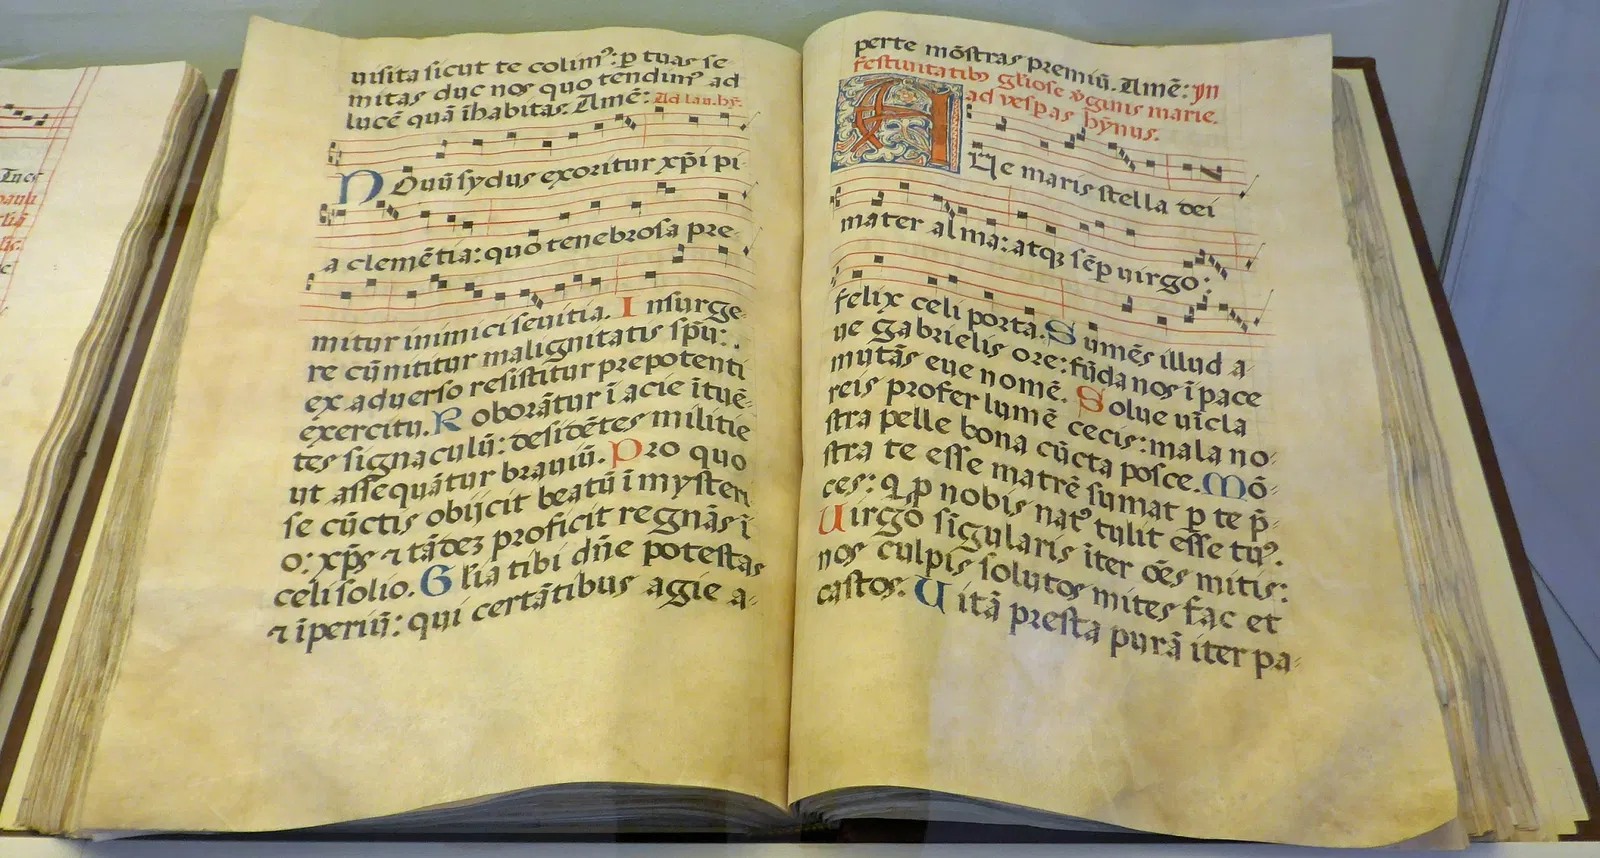 uisita sicut te colim⁹: ꝑ tuas se
mitas duc nos quo tendim⁹ ad
lucē quā īhabitas. Amē: Ad lau. hȳ.
Nouū sydus exoritur xp̄i pi
a clemētia: quo tenebrosa pre-
mitur inimici seuitia. Insurge-
re cū mititur malignitatis sp̄u:
ex aduerso resistitur prepotenti
exercitu. Roborātur ī acie ītuē-
tes signaculū: desidētes militie
ut assequātur brauiū. Pro quo
se cūctis obijcit beatū ī mysteri
o: xp̄s ⁊ tādez proficit regnās ī
celi solio. Gl'ia tibi dn̄e potestas
⁊ īperiū: qui certātibus agie a-
perte mōstras premiū. Amē: Jn
festiuitatib⁹ gl'iose v̄ginis marie.
ad vesp̄as hȳnus.
Aue maris stella dei
mater alma: atqꝫ sēꝑ uirgo:
felix celi porta. Sumēs illud a-
ue gabrielis ore: fūda nos ī pace
mutās eue nomē. Solue uīcla
reis profer lumē cecis: mala no-
stra pelle bona cūcta posce. Mō-
stra te esse matrē sumat ꝑ te p̄-
ces: q̄ ꝓ nobis nat⁹ tulit esse tu⁹.
Uirgo sīgularis īter oēs mitis:
nos culpis solutos mites fac et
castos. Uitā presta purā iter pa-